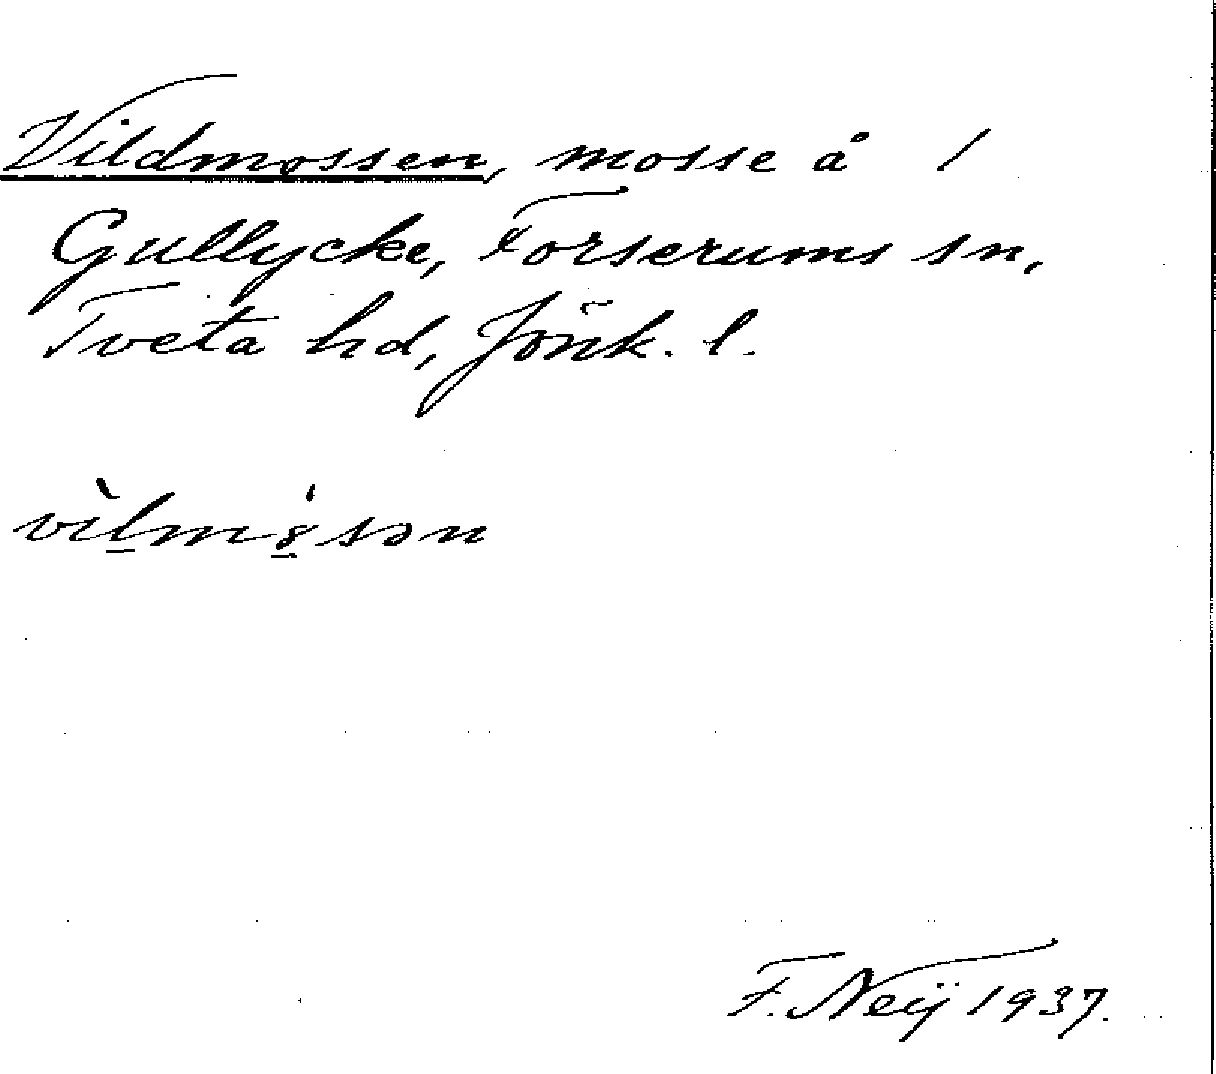 Vildmossen, mosse å /
Gullycke, Forserums sn,
Tveta hd, Jönk. l.
F. Neij 1937.